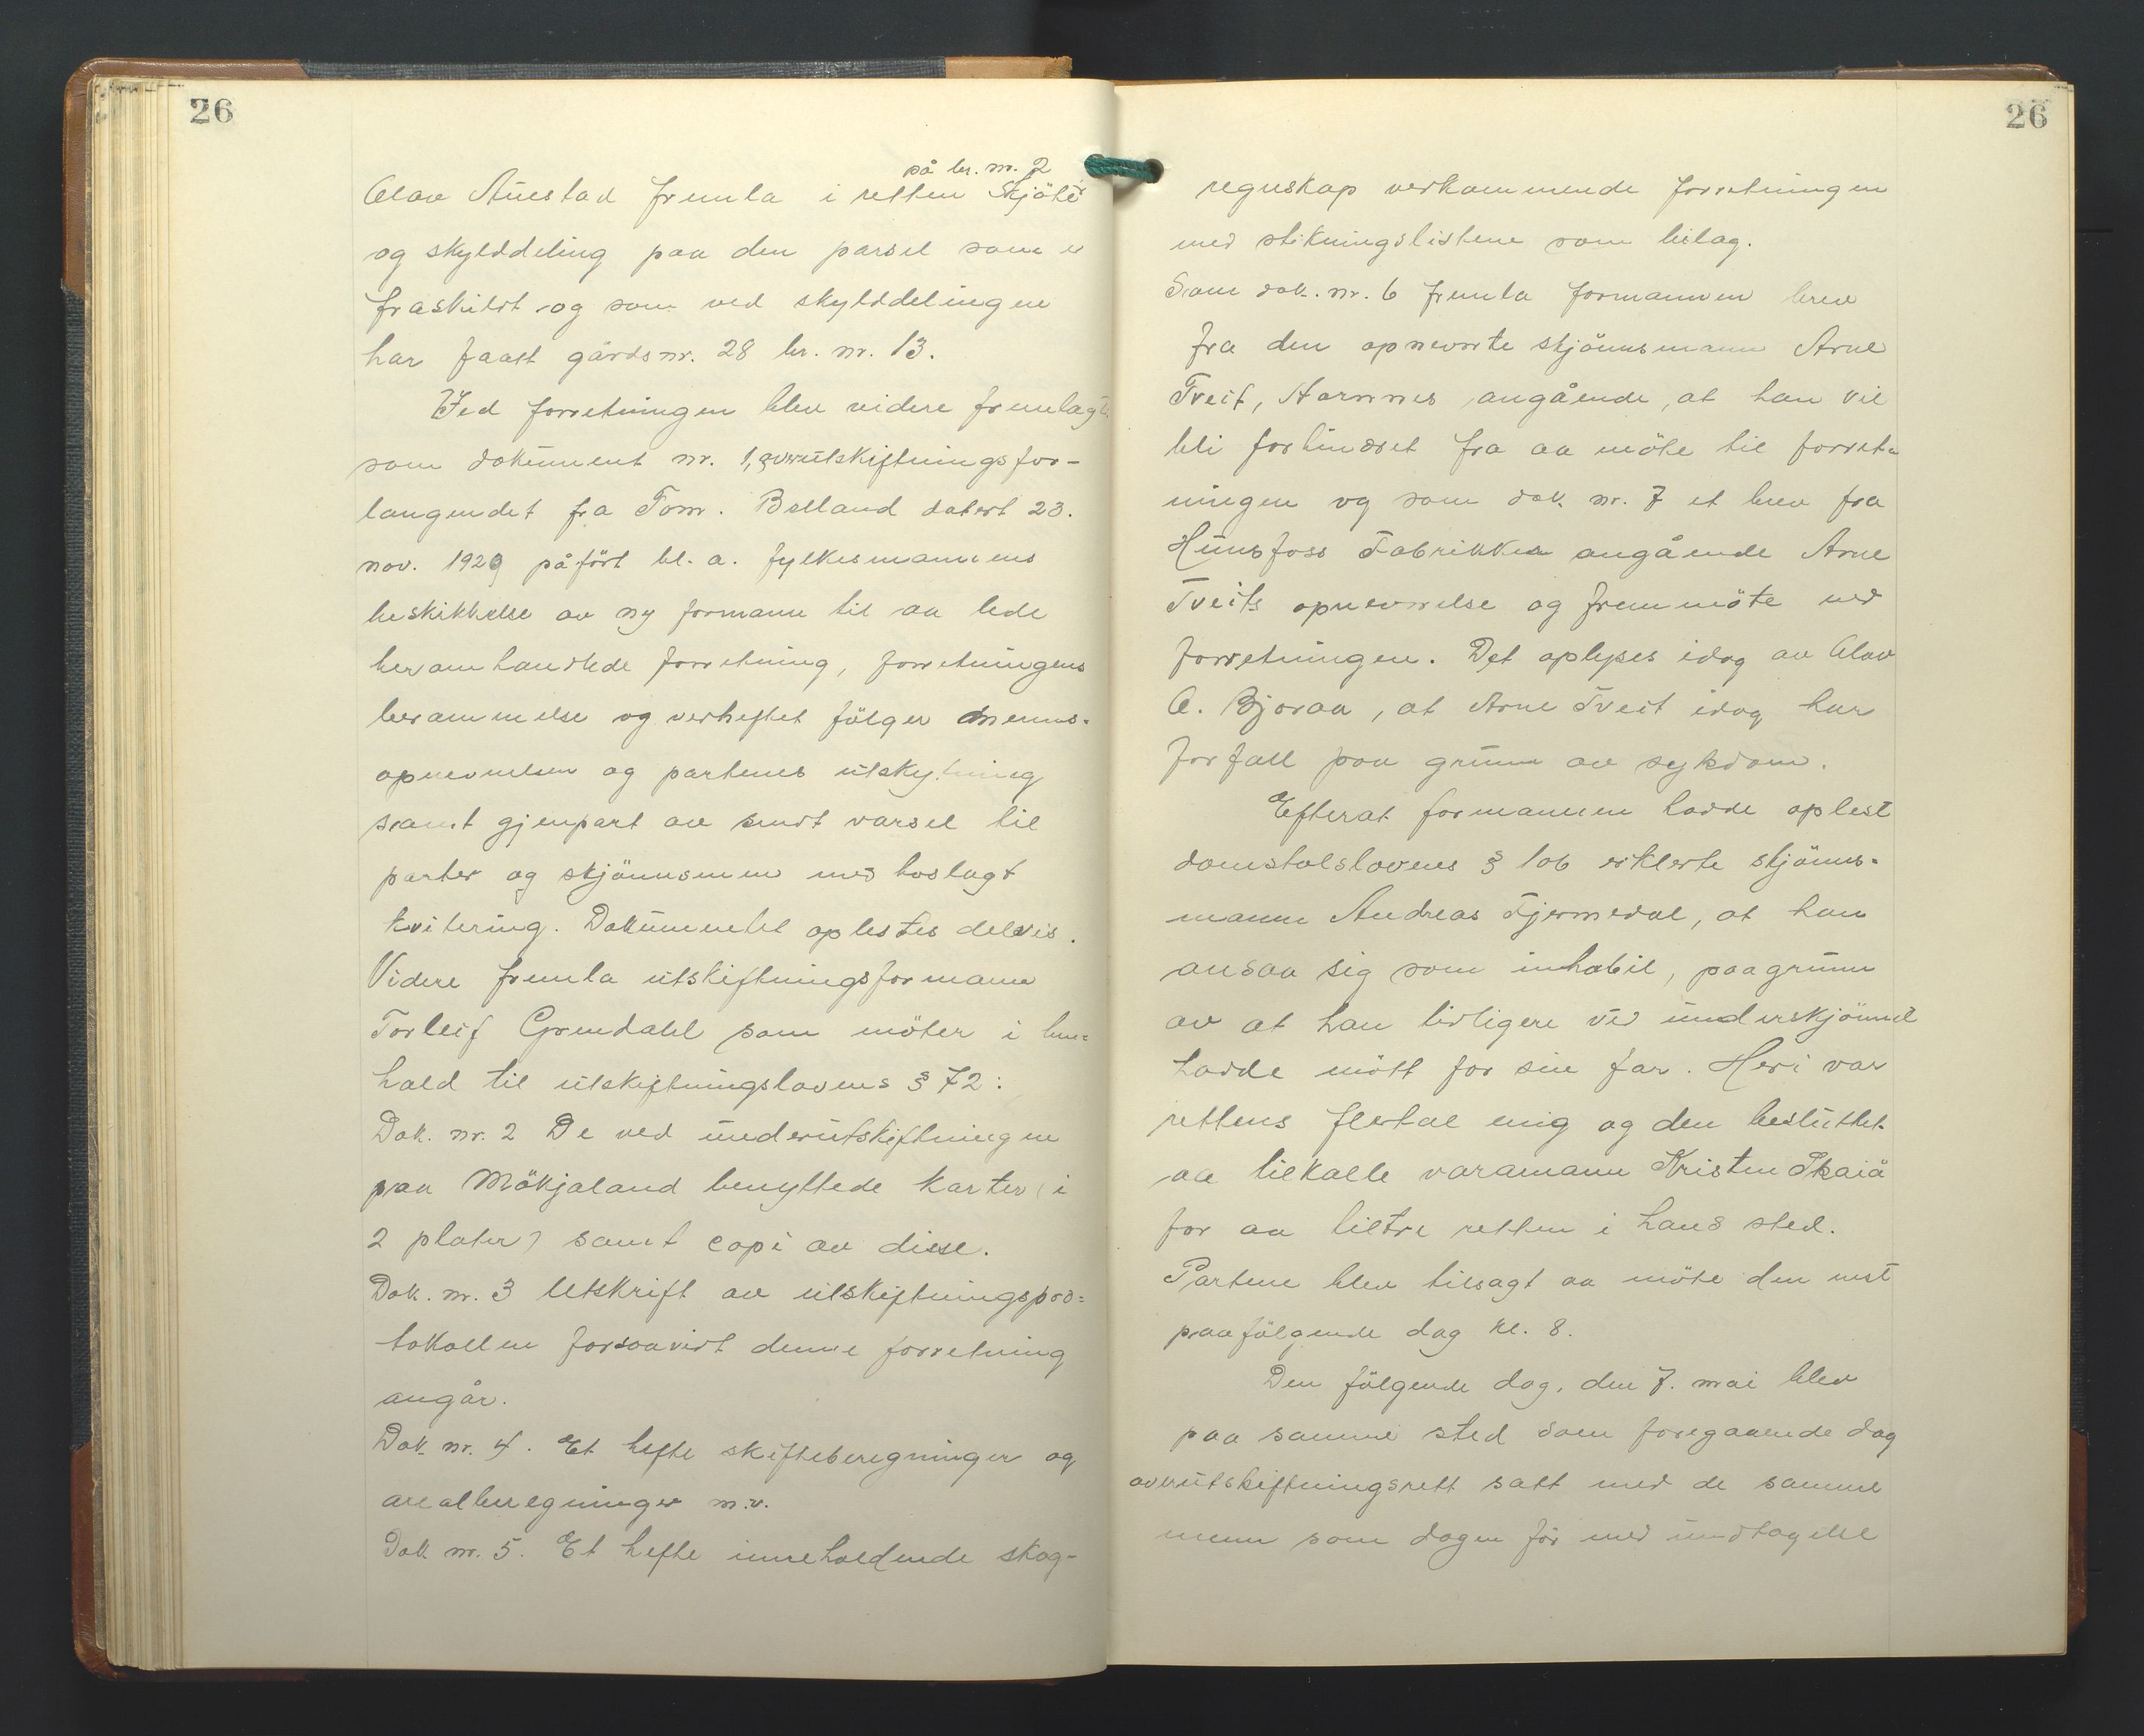 26
på br. nr. 2
Olav Austad fremla i retten Skjöte
og skylddeling paa den parsel som er
fraskildt og som ved skylddelingen
har faatt gårdsnr. 28 br. nr. 13.
Ved forretningen blev videre fremlagt
som dokument nr. 1, overutskiftningsfor-
langendet fra Tom. Belland datert 23.
nov. 1929 påfört bl. a. fylkesmannens
beskikkelse av ny formann til aa lede
heromhandlede forretning, forretningens
berammelse og verheftet fölger menns-
opnevnelsen og partenes utskytning
samt gjenpart av sendt varsel til
parter og skjönnsmenn med boslagt
kvitering. Dokumentet oplestes delvis.
Videre fremla utskiftningsformann
Torleif Grendahl som möter i hen-
hold til utskiftningslovens § 72:
Dok. nr. 2 De ved underutskiftningen
paa Mökjaland benyttede karter (i
2 plater) samt copi av disse.
Dok. nr. 3 Utskrift av utskiftningspro-
tokollen forsaavidt denne forretning
angår.
Dok. nr. 4. Et hefte skifteberegninger og
arealberegninger m.v.
Dok. nr. 5. Et hefte inneholdende skog-
26
regnskap vedkommende forretningen
med stikningslistene som bilag.
Som dok. nr. 6 fremla formannen brev
fra den opnevnte skjönnsmann Arne
Tveit, Hornnes angående, at han vil
bli forhindret fra aa möte til forret-
ningen og som dok. nr. 7 et brev fra
Hunsfoss Fabrikker angående Arne
Tveits opnevnelse og fremmöte ved
forretningen. Det oplyses idag av Olav
O. Bjoraa, at Arne Tveit idag har
forfall paa grunn av sykdom.
Efterat formannen hadde oplest
domstolslovens § 106 erklerte skjönns-
mann Andreas Tjermedal, at han
ansaa sig som inhabil, paagrunn
av at han tidligere ved underskjönnet
hadde mött for sin far. Heri var
rettens flertal enig og den besluttet
aa tilkalle varamann Kristen Skaiå
for aa tiltre retten i hans sted.
Partene blev tilsagt aa möte den nest
paafölgende dag kl. 8.
Den fölgende dag, den 7. mai blev
paa samme sted som foregaaende dag
overutskiftningsrett satt med de samme
menn som dagen för med undtagelse